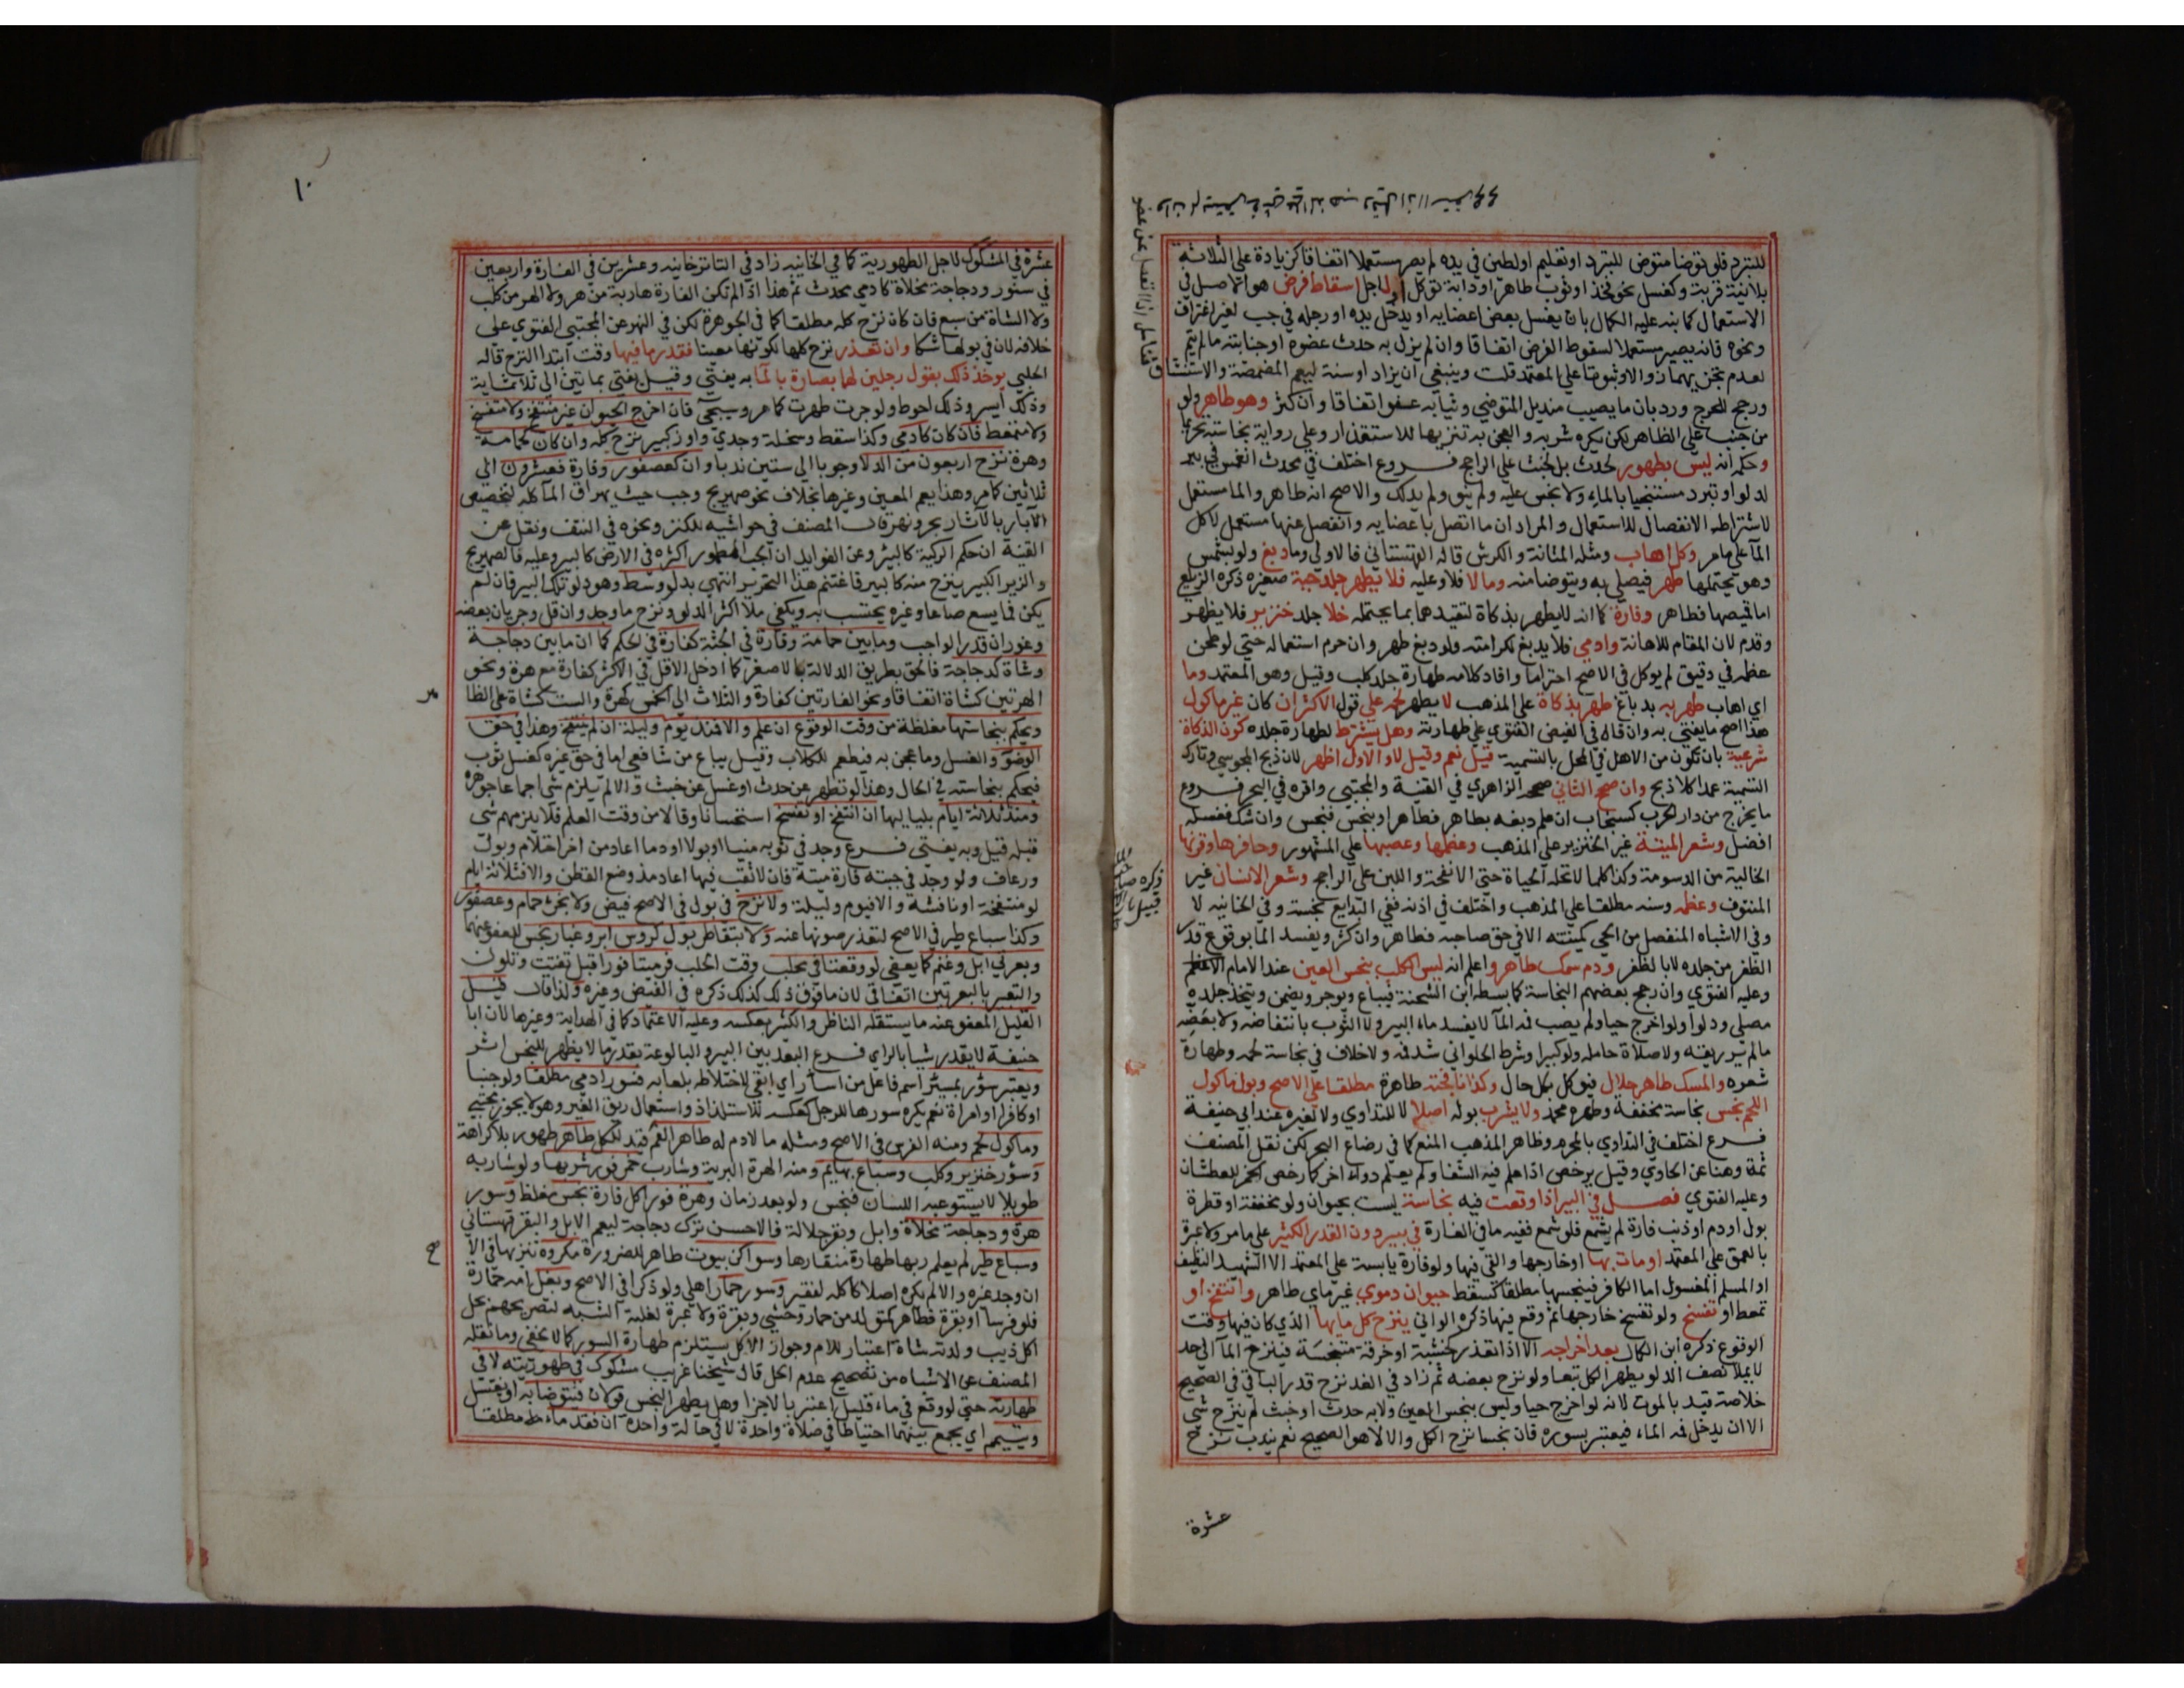 للتبرد فلو توضا متوضي للتبرد او تعليم او لطين في يده لم يصر مستعملا اتفاقا كزيادة على الثلاثة
بلا نية قربة وكغسل نحو فخذ او ثوب طاهر او دابة توكل او لاجل اسقاط فرض هو الاصل في
الاستعمال كما نبه عليه الكمال بان يغسل بعض اعضايه او يدخل يده او رجله في جب لغير اغتراف
ونحوه فانه يصير مستعملا لسقوط الفرض اتفاقا وان لم يزل به حدث عضوه او جنابته ما لم يتم
لعدم تجزيهما زوالا وثبوتا على المعتمد قلت وينبغي ان يزاد او سنة ليعم المضمضة والاستنشاق
ورجح للحرج ورد بان ما يصيب منديل المتوضي وثيابه عفو اتفاقا وان كثر وهو طاهر ولو
من جنب على الظاهر لكن يكره شربه والعجن به تنزيها للاستقذار وعلى رواية نجاسته تحريما
وحكمه انه ليس بطهور لحدث بل لخبث على الراجح فروع اختلف في محدث انغمس في بير
لدلو او تبرد مستنجيا بالماء ولا نجس عليه ولم ينو ولم يدلك والاصح انه طاهر والما مستعمل
لاشتراط الانفصال للاستعمال والمراد ان ما اتصل باعضايه وانفصل عنها مستعمل لا كل
الما على ما مر وكل اهاب ومثله المثانة والكرش قاله القهستاني فالاولى وما دبغ ولو بشمس
وهو يحتملها طهر فيصلى به ويتوضا منه وما لا فلا وعليه فلا يطهر جلد حية صغيره ذكره الزيلعي
اما قميصها فطاهر وفارة كما انه لا يطهر بذكاة لتقيدهما بما يحتمله خلا جلد خنزير فلا يطهر
وقدم لان المقام للاهانة وادمي فلا يدبغ لكرامته ولو دبغ طهر وان حرم استعماله حتى لو طحن
عظمه في دقيق لم يوكل في الاصح احتراما وافاد كلامه طهارة جلد كلب وفيل وهو المعتمد وما
اي اهاب طهر به بدباغ طهر بذكاة على المذهب لا يطهر لحمه على قول الاكثر ان كان غير ماكول
هذا اصح ما يفتى به وان قال في الفيض الفتوي على طهارته وهل يشترط لطهارة جلده كون الذكاة
شرعية بان تكون من الاهل في المحل بالتسمية قيل نعم وقيل لا والاول اظهر لان ذبح المجوسي وتارك
التسمية عمدا كلا ذبح وان صحح الثاني صححه الزاهدي في القنية والمجتبى واقره في البحر فروع
ما يخرج من دار الحرب كسنجاب ان علم دبغه بطاهر فطاهر او بنجس فنجس وان شك فغسله
افضل وشعر الميتة غير الخنزير على المذهب وعظمها وعصبها على المشهور وحافرها وقرنها
الخالية من الدسومة وكذا كلما لا تحله الحياة حتى الانفحة واللبن على الراجح وشعر الانسان غير
المنتوف وعظمه وسنه مطلقا على المذهب واختلف في اذنه ففي البدايع نجسة وفي الخانيه لا
وفي الاشباه المنفصل من الحي كميتته الا في حق صاحبه فطاهر وان كثر ويفسد الما بوقوع قدر
الظفر من جلده لا بالظفر ودم سمك طاهر واعلم انه ليس الكلب بنجس العين عند الامام الاعظم
وعليه الفتوي وان رجح بعضهم النجاسة كما بسطه ابن الشحنة فيباع ويوجر ويضمن ويتخذ جلده
مصلى ودلوا ولو اخرج حيا ولم يصب فمه الما لا يفسد ماء البير ولا الثوب بانتفاضه ولا بعضه
ما لم ير ريقه ولا صلاة حامله ولو كبيرا وشرط الحلواني شد فمه ولا خلاف في نجاسة لحمه وطهارة
شعره والمسك طاهر حلال فيوكل بكل حال وكذا نافجته طاهرة مطلقا على الاصح وبول ماكول
اللحم نجس نجاسة مخففة وطهره محمد ولا يشرب بوله اصلا لا للتداوي ولا لغيره عند ابي حنيفة
فرع اختلف في التداوي بالمحرم وظاهر المذهب المنع كما في رضاع البحر لكن نقل المصنف
ثمة وهنا عن الحاوي وقيل يرخص اذا علم فيه الشفا ولم يعلم دواء اخر كما رخص الخمر للعطشان
وعليه الفتوي فصل في البير اذا وقعت فيه نجاسة ليست بحيوان ولو مخففة او قطرة
بول او دم او ذنب فارة لم يشمع فلو شمع ففيه ما في الفارة في بير دون القدر الكثير على ما مر ولا عبرة
بالعمق على المعتمد او مات بها او خارجها والقي فيها ولو فارة يابسة على المعتمد الا الشهيد النظيف
او المسلم المغسول اما الكافر فينجسها مطلقا كسقط حيوان دموي غير مايي طاهر وانتفخ او
تمعط او تفسخ ولو تفسخ خارجها ثم وقع فيها ذكره الواني ينزح كل مايها الذي كان فيها وقت
الوقوع ذكره ابن الكمال بعد اخراجه الا اذا تعذر كخشبة او خرقة متنجسة فينزح الما الى حد
لا يملا نصف الدلو يطهر الكل تبعا ولو نزح بعضه ثم زاد في الغد نزح قدر الباقي في الصحيح
خلاصة قيد بالموت لانه لو اخرج حيا وليس بنجس العين ولا به حدث او خبث لم ينزح شي
الا ان يدخل فمه الماء فيعتبر بسوره فان نجسا نزح الكل والا لا هو الصحيح نعم يندب نزح
عشرة
١٠
عشرة في المشكوك لاجل الطهورية كما في الخانيه زاد في التاترخانيه وعشرين في الفارة واربعين
في سنور ودجاجة مخلاة كادمي محدث ثم هذا اذا لم تكن الفارة هاربة من هر ولا الهر من كلب
ولا الشاة من سبع فان كان نزح كله مطلقا كما في الجوهرة لكن في النهر عن المجتبى الفتوي على
خلافه لان في بولها شكا وان تعذر نزح كلها لكونها معينا فقدر ما فيها وقت ابتدا النزح قاله
الحلبي يوخذ ذلك بقول رجلين لهما بصارة بالما به يفتى وقيل يفتى بمايتين الى ثلاثماية
وذلك ايسر وذلك احوط ولو جرت طهرت كما مر وسيجي فان اخرج الحيوان غير منتفخ ولا متفسخ
ولا متمعط فان كان كادمي وكذا سقط وسخلة وجدي واوز كبير نزح كله وان كان كحمامة
وهرة نزح اربعون من الدلا وجوبا الى ستين ندبا وان كعصفور وفارة فعشرون الى
ثلاثين كما مر وهذا يعم المعين وغيرها بخلاف نحو صهريج وجب حيث يهراق الما كله لتخصيص
الابار بالاثار بحر ونهر قال المصنف في حواشيه للكنز ونحوه في النتف ونقل عن
القنية ان حكم الركية كالبير وعن الفوايد ان الجب المطمور اكثره في الارض كالبير وعليه فالصهريج
والزير الكبير ينزح منه كالبير فاغتنم هذا التحرير انتهى بدلو وسط وهو دلو تلك البير فان لم
يكن فما يسع صاعا وغيره يحتسب به ويكفي ملا اكثر الدلو ونزح ما وجد وان قل وجريان بعضه
وغوران قدر الواجب وما بين حمامة وفارة في الجثة كفارة في الحكم كما ان ما بين دجاجة
وشاة كدجاجة فالحق بطريق الدلالة بالاصغر كما ادخل الاقل في الاكثر كفارة مع هرة ونحو
الهرتين كشاة اتفاقا ونحو الفارتين كفارة والثلاث الى الخمس كهرة والست كشاة على الظا
ويحكم بنجاستها مغلظة من وقت الوقوع ان علم والا فمذ يوم وليلة ان لم ينتفخ وهذا في حق
الوضو والغسل وما عجن به فيطعم للكلاب وقيل يباع من شافعي اما في حق غيره كغسل ثوب
فيحكم بنجاسته في الحال وهذا لو تطهر عن حدث او غسل عن خبث والا لم يلزم شي اجماعا جوهره
ومنذ ثلاثة ايام بلياليها ان انتفخ او تفسخ استحسانا وقالا من وقت العلم فلا يلزمهم شي
قبله قيل وبه يفتى فرع وجد في ثوبه منيا او بولا او دما اعاد من اخر احتلام وبول
ورعاف ولو وجد في جبته فارة ميتة فان لا ثقب فيها اعاد مذ وضع القطن والا فثلاثة ايام
لو منتفخة او ناشفة والا فيوم وليلة ولا نزح في بول في الاصح فيض ولا بخرء حمام وعصفور
وكذا سباع طير في الاصح لتعذر صونها عنه ولا بتقاطر بول كروس ابر وغبار نجس للعفو عنهما
وبعرتي ابل وغنم كما يعفى لو وقعتا في محلب وقت الحلب فرميتا فورا قبل تفتت وتلون
والتعبير بالبعرتين اتفاقي لان ما فوق ذلك كذلك ذكره في الفيض وغيره ولذا قال قيل
القليل المعفو عنه ما يستقله الناظر والكثير بعكسه وعليه الاعتماد كما في الهداية وغيرها لان ابا
حنيفة لا يقدر شيا بالراي فرع البعد بين البير والبالوعة بقدر ما لا يظهر للنجس اثر
ويعتبر سؤر بمسئر اسم فاعل من اسأر اي ابقى لاختلاطه بلعابه فسور ادمي مطلقا ولو جنبا
او كافرا او امراة نعم يكره سورها للرجل كعكسه للاستلذاذ واستعمال ريق الغير وهو لا يجوز مجتبى
وماكول لحم ومنه الفرس في الاصح ومثله ما لا دم له طاهر الفم قيد للكل طاهر طهور بلا كراهة
وسؤر خنزير وكلب وسباع بهايم ومنه الهرة البرية وشارب خمر فور شربها ولو شاربه
طويلا لا يستوعبه اللسان فنجس ولو بعد زمان وهرة فور اكل فارة نجس مغلظ وسور
هرة ودجاجة مخلاة وابل وبقر جلالة فالاحسن ترك دجاجة ليعم الابل والبقر قهستاني
وسباع طير لم يعلم ربها طهارة منقارها وسواكن بيوت طاهر للضرورة مكروه تنزيها في الا
ان وجد غيره والا لم يكره اصلا كاكله لفقير وسور حمار اهلي ولو ذكرا في الاصح وبغل امه حمارة
فلو فرسا او بقرة فطاهر كمتولد من حمار وحشي وبقرة ولا عبرة لغلبة الشبه لتصريحهم بحل
اكل ذيب ولدته شاة اعتبارا للام وجواز الاكل يستلزم طهارة السور كما لا يخفى وما نقله
المصنف عن الاشباه من تصحيح عدم الحل قال شيخنا غريب مشكوك في طهوريته لا في
طهارته حتى لو وقع في ماء قليل اعتبر بالاجزا وهل يطهر النجس قولان فيتوضا به او يغتسل
ويتيمم اي يجمع بينهما احتياطا في صلاة واحدة لا في حالة واحدة ان فقد ماء مطلقا